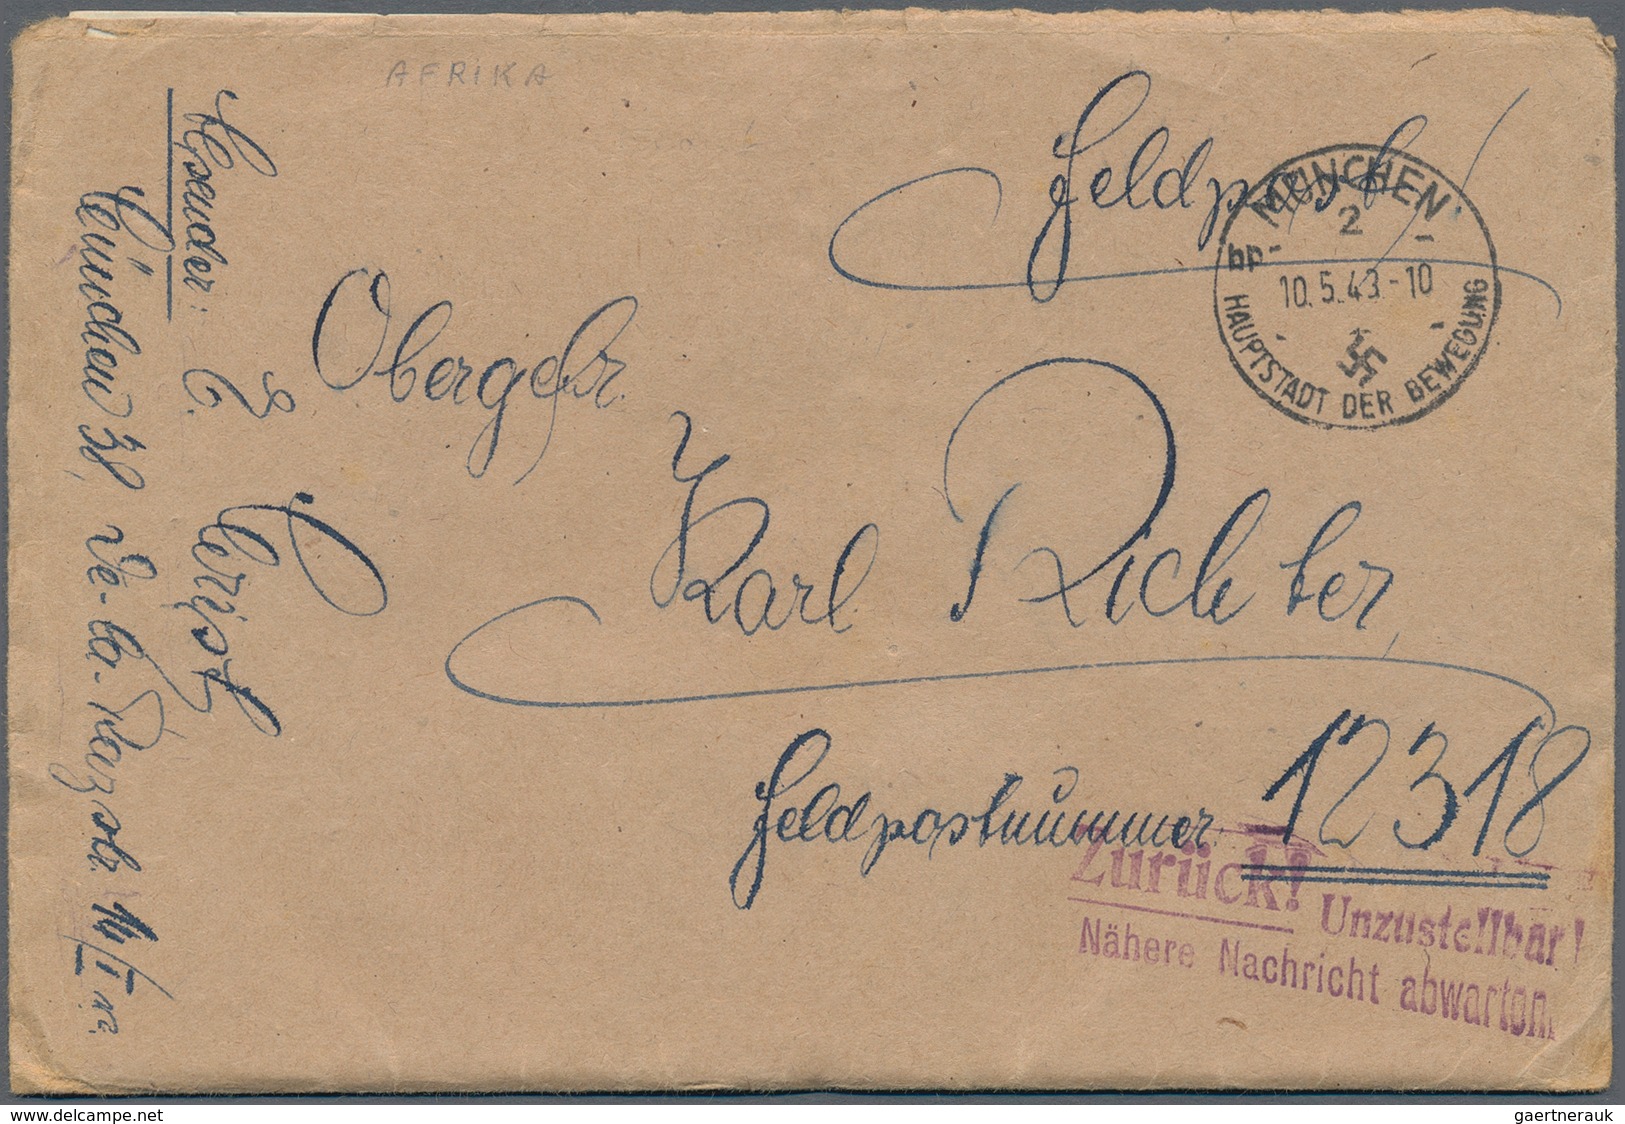 AFRIKA
Feldpost!
MÜNCHEN
2
bp
10.5.43.-10
HAUPTSTADT DER BEWEGUNG
Obergefr.
Karl Richter,
Feldpostnummer 12318
Zurück! Unzustellbar!
Nähere Nachricht abwarten
Absender: E.
München 38, De-la-Pazstr. 14/I
www.delcampe.net
gaertnerauk